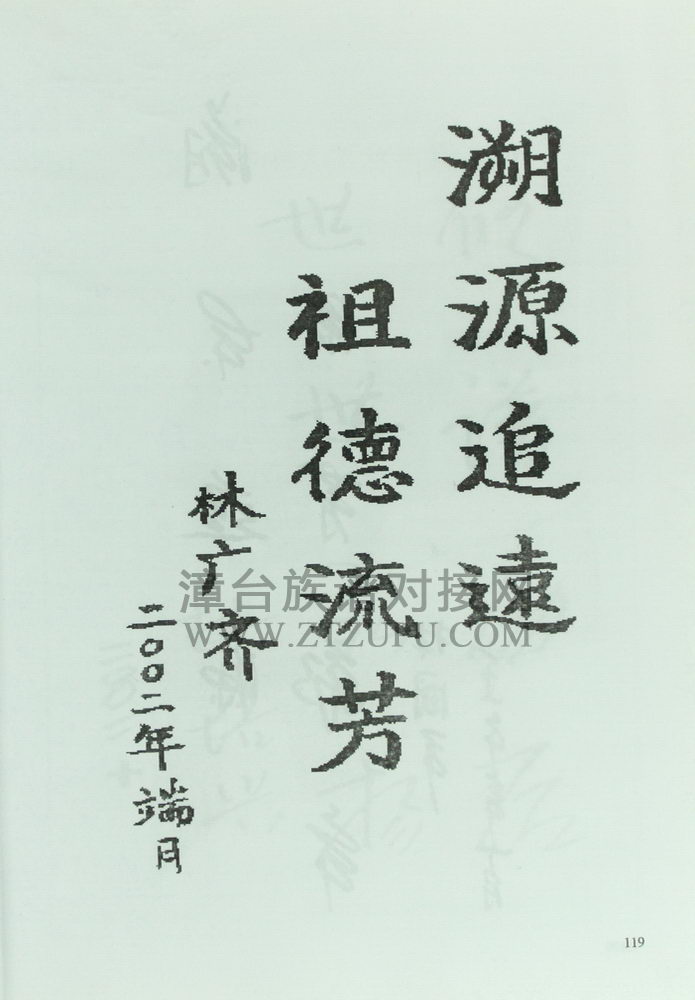 溯源追遠
祖德流芳
林广齐
二〇〇二年端月
漳台族谱对接网
WWW.ZTZUPU.COM
119